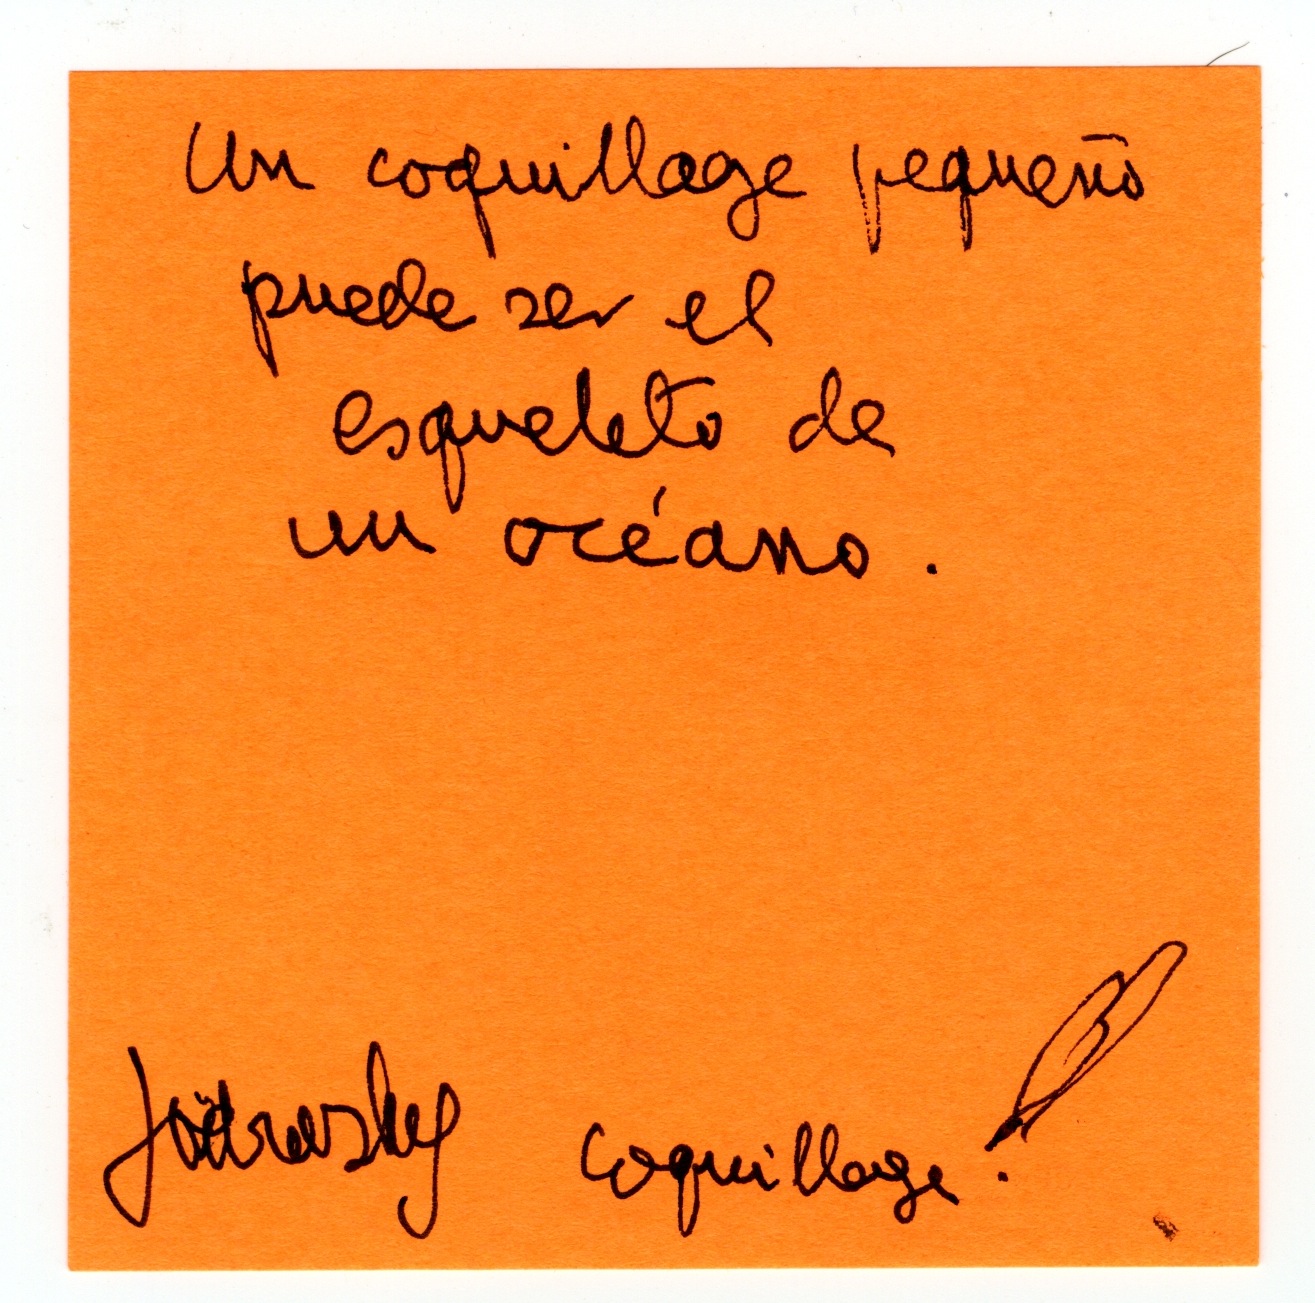 Un coquillage pequeño
puede ser el
esqueleto de
un océano.
Jodorowsky coquillage!